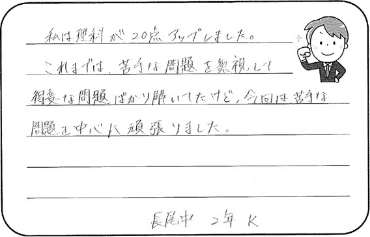 私は理科が20点アップしました。
これまでは、苦手な問題を無視して
得意な問題ばかり解いてたけど、今回は苦手な
問題を中心に頑張りました。
長尾中 2年 K